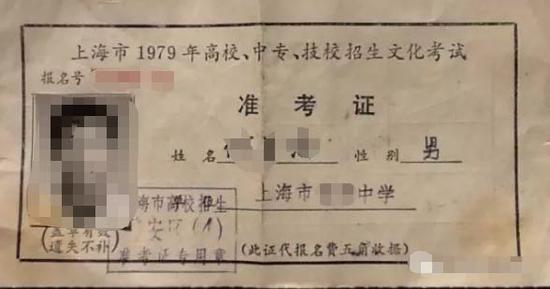 上海市1979年高校、中专、技校招生文化考试
报名号
准考证
姓名 性别 男
上海市 中学
海市高校招生
安
准考证专用章
(盖章有效
遗失不补)
(此证代报名费五角收据)